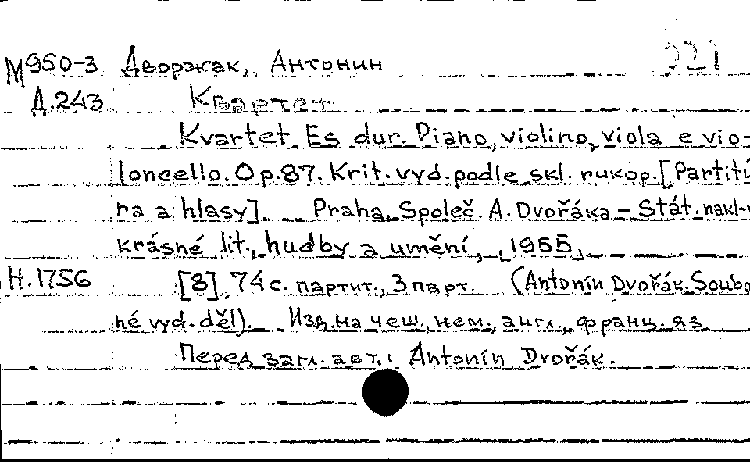 М950-3 Дворжак, Антонин 921
Д.243 Квартет
Kvartet Es dur. Piano, violino, viola e vio-
loncello. Op.87. Krit. vyd. podle skl. rukop. [Partitu
ra a hlasy]. Praha, Společ. A. Dvořáka – Stát. nakl-v
krásné lit., hudby a umění, 1955.
Н.1756 [8], 74 с. партит., 3 парт. (Antonín Dvořák. Soubo
né vyd. děl). Изд. на чеш., нем., англ., франц. яз.
Перед загл. авт.: Antonín Dvořák.